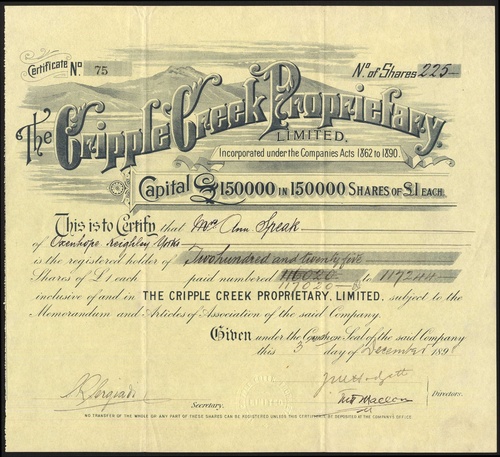 Certificate No. 75
No. of Shares 225
The Cripple Creek Proprietary.
LIMITED.
Incorporated under the Companies Acts 1862 to 1890.
Capital £150000 IN 150000 SHARES OF £1 EACH.
This is to Certify that Mrs Ann Speak
of Oxenhope Keighley Yorks
is the registered holder of Two hundred and twenty five
Shares of £1 each paid numbered 116020 to 117244
117020
inclusive of and in THE CRIPPLE CREEK PROPRIETARY, LIMITED, subject to the
Memorandum and Articles of Association of the said Company.
Given under the Common Seal of the said Company
this 3rd day of December 189
Directors.
Secretary.
NO TRANSFER OF THE WHOLE OR ANY PART OF THESE SHARES CAN BE REGISTERED UNLESS THIS CERTIFICATE BE DEPOSITED AT THE COMPANY'S OFFICE.